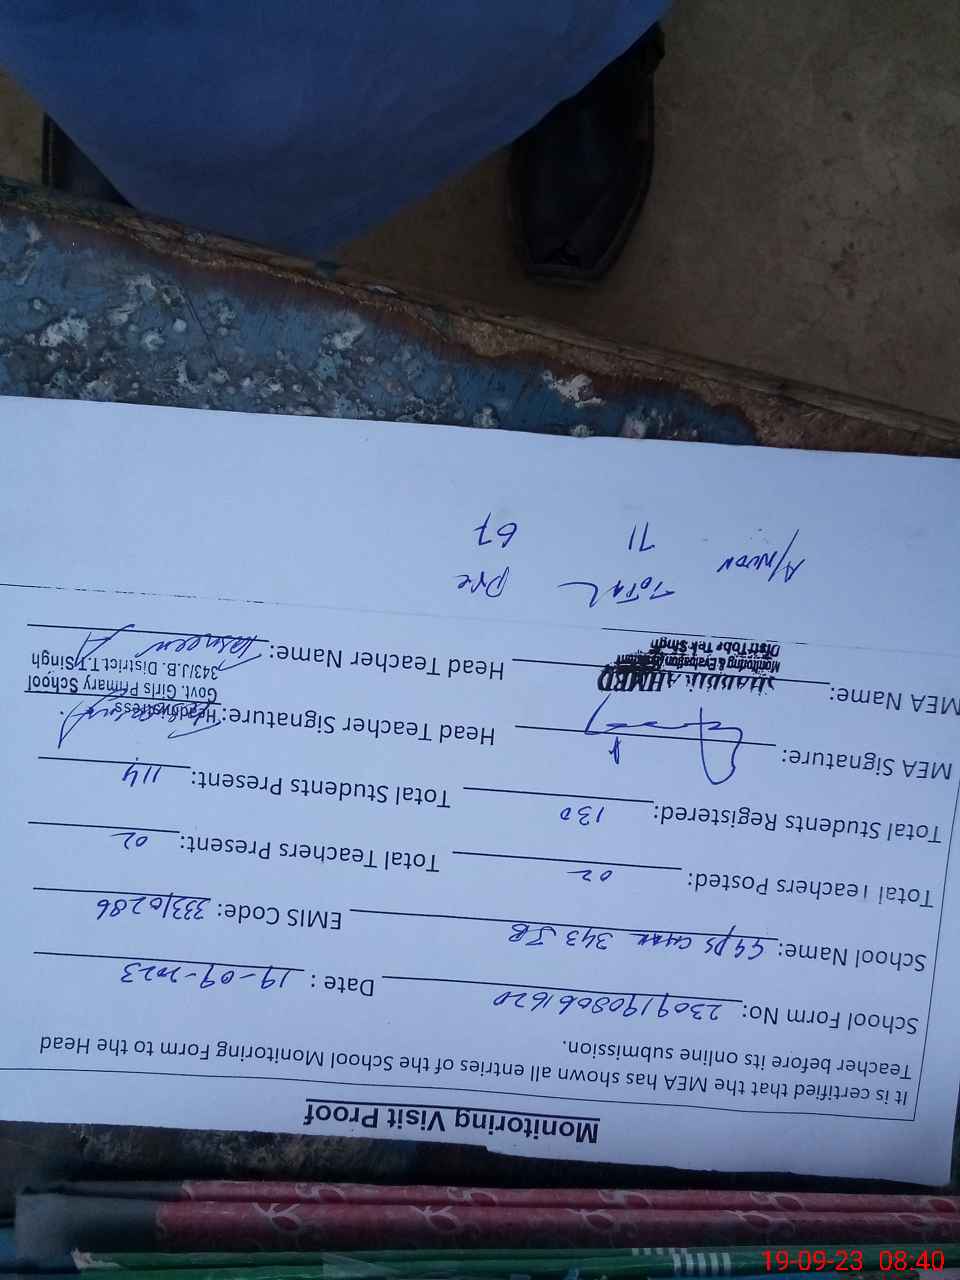 Monitoring Visit Proof
It is certified that the MEA has shown all entries of the School Monitoring Form to the Head
Teacher before its online submission.
School Form No: 23091908061620 Date : 19-09-2023
School Name: GGPS CHAK 343 JB EMIS Code: 33310286
Total Teachers Posted: 02 Total Teachers Present: 02
Total Students Registered: 130 Total Students Present: 114
MEA Signature: Head Teacher Signature: Headmistress
Govt. Girls Primary School
343/J.B. District.T.T.Singh
MEA Name: SHABBIR AHMED Head Teacher Name: Tasneem A
Monitoring & Evaluation Assistant
Distt Toba Tek Singh
TOTAL Pre
71 67
19-09-23 08:40